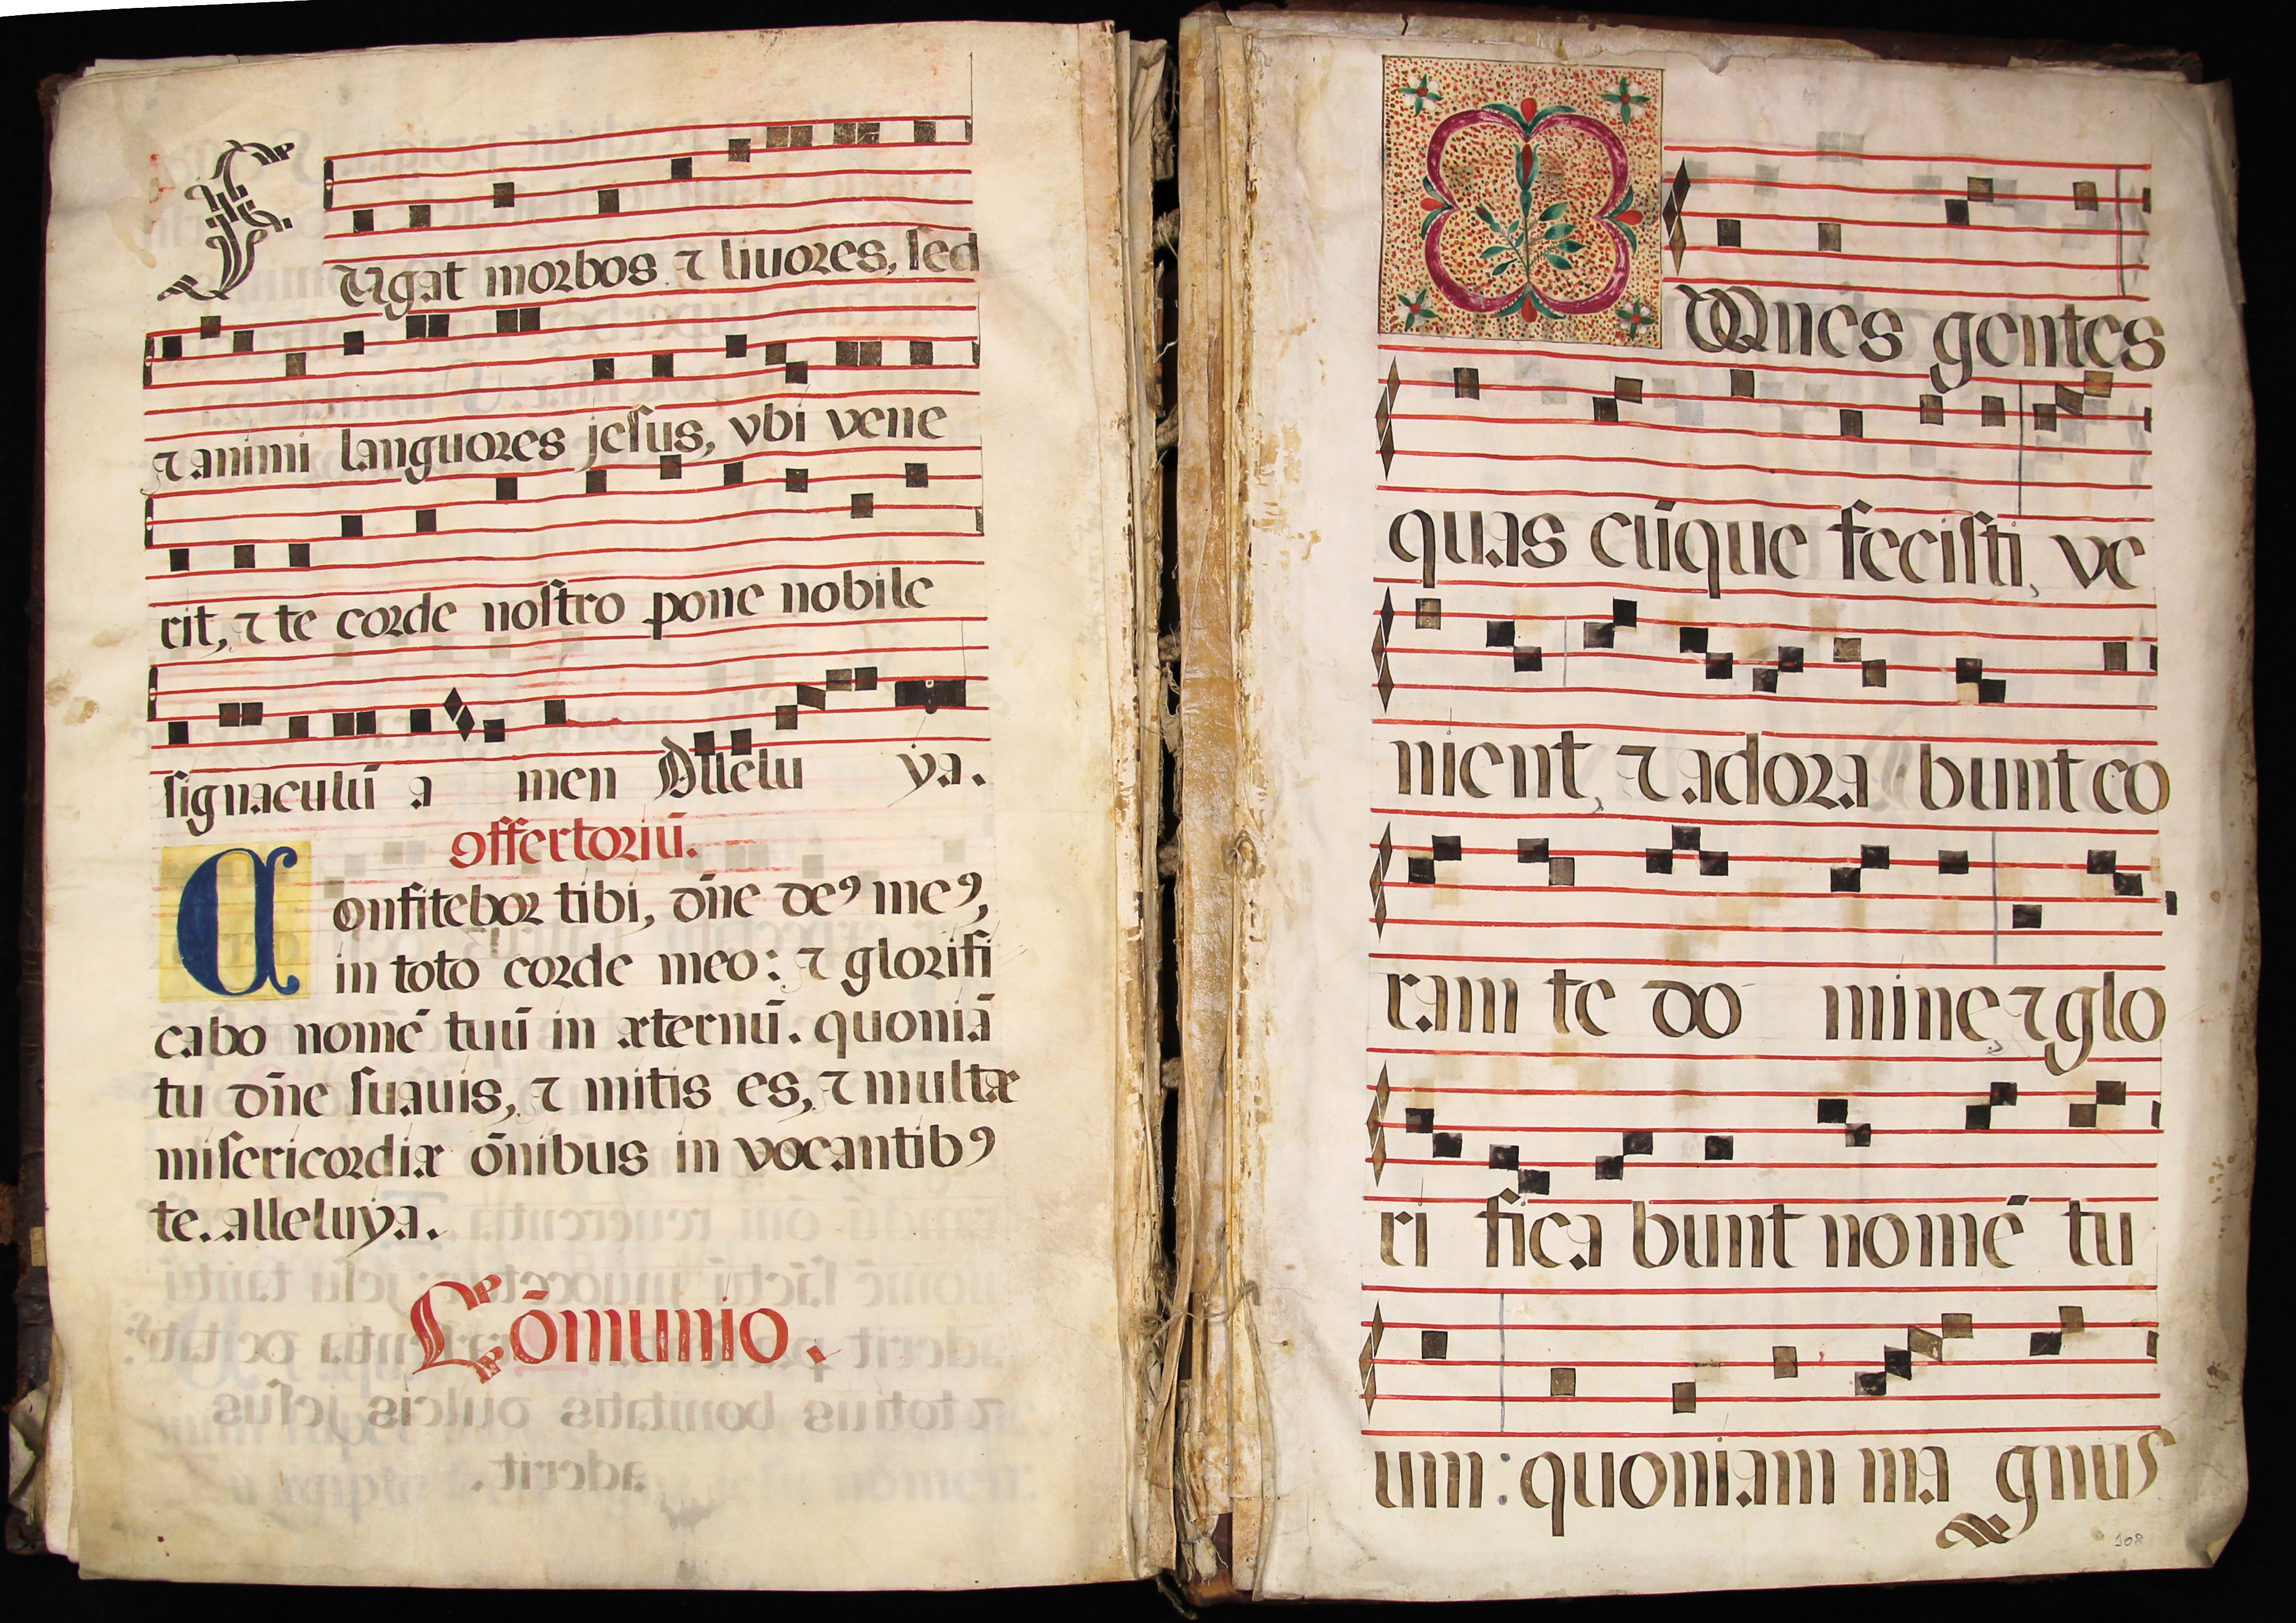 Fugat morbos ⁊ liuores, sed
⁊ animi languores jesus, vbi vene
rit, ⁊ te corde nostro pone nobile
signaculū a men Allelu ya.
Offertoriū.
Confitebor tibi, dn̄e deꝰ meꝰ,
in toto corde meo: ⁊ glorifi
cabo nomē tuū in æternū. quoniā
tu dn̄e suauis, ⁊ mitis es, ⁊ multæ
misericordiæ ōnibus in vocantibꝰ
te. alleluya.
Cōmunio.
Omnes gentes
quas cūque fecisti, ve
nient, ⁊ adora bunt co
ram te do mine, ⁊ glo
ri fica bunt nomē tu
um: quoniam ma gnus
108